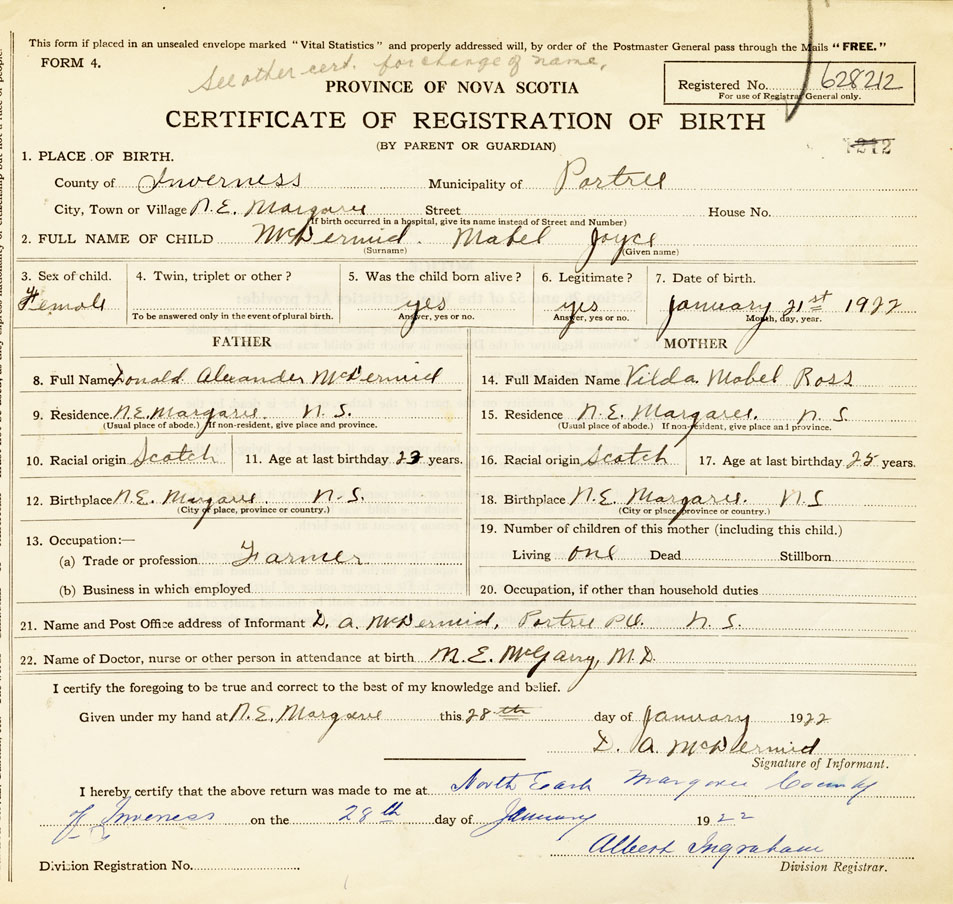 This form if placed in an unsealed envelope marked "Vital Statistics" and properly addressed will, by order of the Postmaster General pass through the Mails "FREE."
FORM 4.
See other cert. for change of name.
PROVINCE OF NOVA SCOTIA
Registered No. 628212
For use of Registrar General only.
CERTIFICATE OF REGISTRATION OF BIRTH
(BY PARENT OR GUARDIAN)
1. PLACE OF BIRTH.
County of Inverness Municipality of Portree
City, Town or Village N.E. Margaree Street House No.
(If birth occurred in a hospital, give its name instead of Street and Number)
2. FULL NAME OF CHILD McDermid. Mabel Joyce
(Surname) (Given name)
3. Sex of child. 4. Twin, triplet or other? 5. Was the child born alive? 6. Legitimate? 7. Date of birth.
Female yes yes January 21st 1922
To be answered only in the event of plural birth. Answer, yes or no. Answer, yes or no. Month, day, year.
FATHER MOTHER
8. Full Name Donald Alexander McDermid 14. Full Maiden Name Vilda Mabel Ross
9. Residence. N.E. Margaree. N.S. 15. Residence N.E. Margaree. N.S
(Usual place of abode.) If non-resident, give place and province. (Usual place of abode.) If non-resident, give place and province.
10. Racial origin Scotch 11. Age at last birthday years. 16. Racial origin Scotch 17. Age at last birthday 25 years.
12. Birthplace N.E. Margaree. N.S. 18. Birthplace N.E. Margaree. N.S
(City or place, province or country.) (City or place, province or country.)
13. Occupation:— 19. Number of children of this mother (including this child.)
(a) Trade or profession Farmer Living one Dead Stillborn
(b) Business in which employed 20. Occupation, if other than household duties
21. Name and Post Office address of Informant D. A. McDermid, Portree P.O. N.S.
22. Name of Doctor, nurse or other person in attendance at birth M.E. McGarry, M.D.
I certify the foregoing to be true and correct to the best of my knowledge and belief.
Given under my hand at N.E. Margaree this 28th day of January 1922
D. A. McDermid
Signature of Informant.
I hereby certify that the above return was made to me at North East Margaree County
of Inverness on the 28th day of January 1922
Albert Ingraham
Division Registration No. Division Registrar.